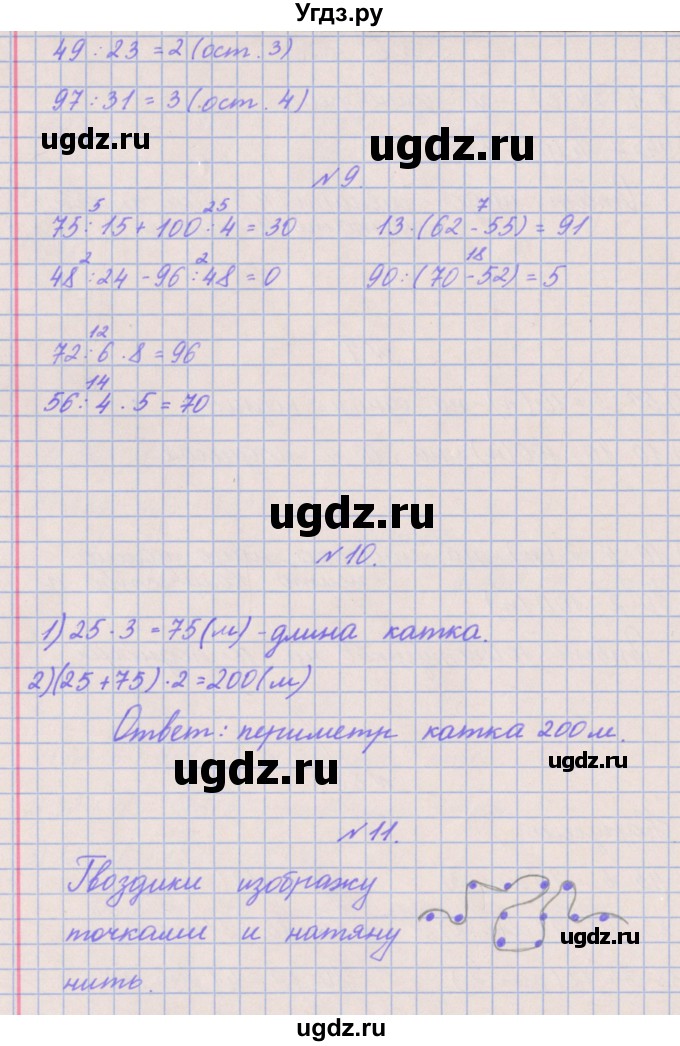 Угдз.ру
49 : 23 = 2 (ост. 3)
97 : 31 = 3 (ост. 4)
ugdz.ru ugdz.ru
№ 9.
5 25 7
75 : 15 + 100 : 4 = 30 13 · (62 - 55) = 91
2 2 18
48 : 24 - 96 : 48 = 0 90 : (70 - 52) = 5
12
72 : 6 · 8 = 96
14
56 : 4 · 5 = 70
ugdz.ru
№ 10.
1) 25 · 3 = 75 (м) - длина катка.
2) (25 + 75) · 2 = 200 (м)
Ответ: периметр катка 200 м.
ugdz.ru ugdz.ru
№ 11.
Гвоздики изображу
точками и натяну
нить.
ugdz.ru
ugdz.ru